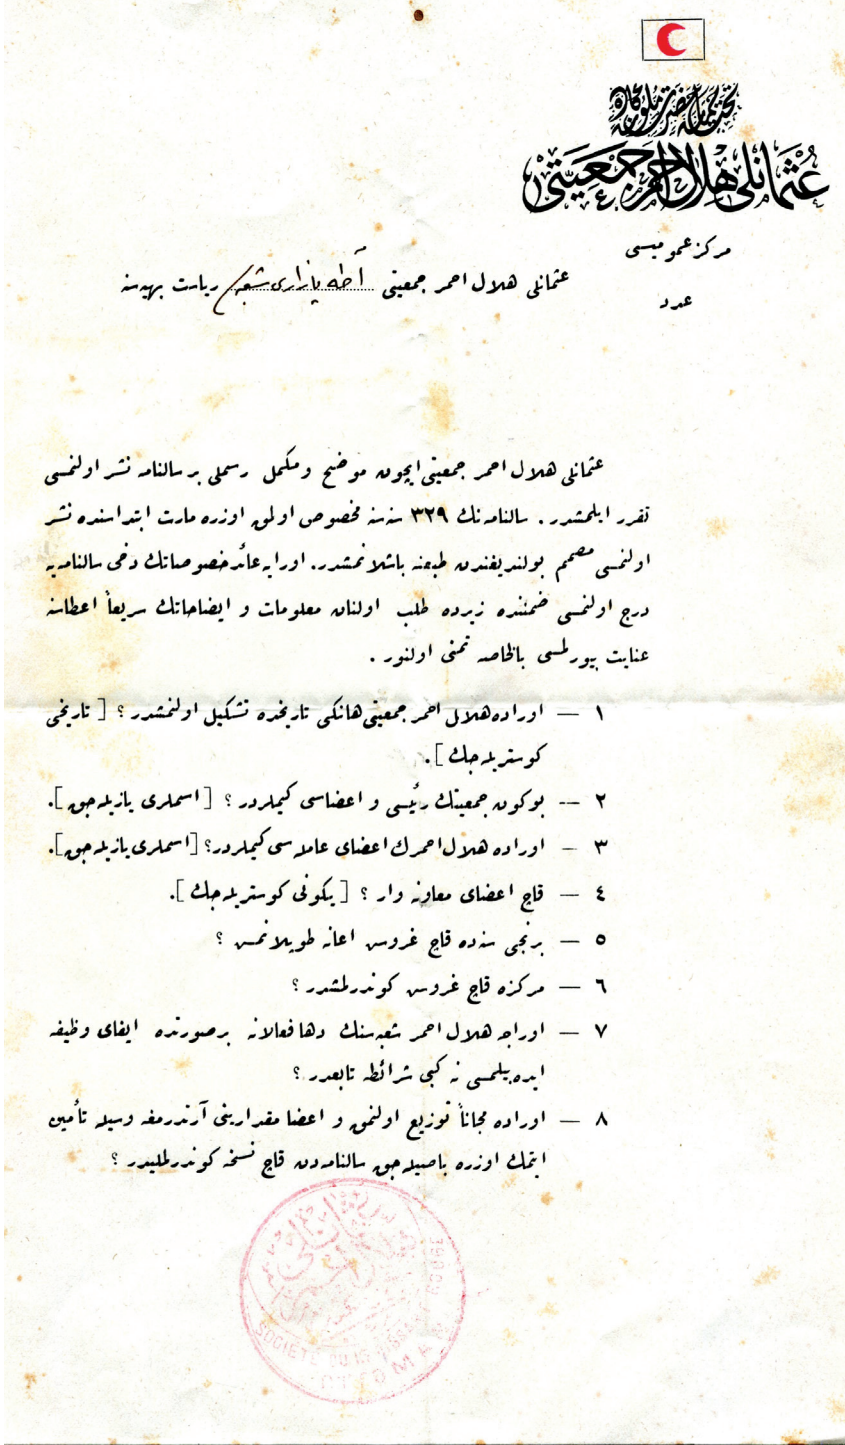 تحت حمایهٔ حضرت ملوکانه
عُثمانلی هلال احمر جمعیتی
مركز عمومیسی
عدد
عثمانلی هلال احمر جمعیتی آطه پازاری شعبه‌سی ریاست بهیه‌سنه
عثمانلی هلال احمر جمعیتی ایچون موضح ومكمل رسملی بر سالنامه نشر اولنمسی
تقرر ایلمشدر . سالنامه‌نك ٣٢٩ سنه‌سنه مخصوص اولمق اوزره مارت ابتداسنده نشر
اولنمسی مصمم بولندیغندن طبعنه باشلانمشدر. اورایه عائد خصوصاتك دخی سالنامه‌یه
درج اولنمسی ضمننده زیرده طلب اولنان معلومات و ایضاحاتك سریعاً اعطاسنه
عنایت بیورلمسی بالخاصه تمنی اولنور .
١ — اوراده هلال احمر جمعیتی هانكی تاریخده تشكیل اولنمشدر ؟ [ تاریخی
كوستریله‌جك ].
٢ — بوكون جمعیتك رئیسی و اعضاسی كیملردر ؟ [ اسملری یازیله‌جق ].
٣ — اوراده هلال احمرك اعضای عامله‌سی كیملردر؟ [اسملری یازیله‌جق].
٤ — قاچ اعضای معاونه وار ؟ [ یكونی كوستریله‌جك ].
٥ — برنجی سنه‌ده قاچ غروش اعانه طوپلانمش ؟
٦ — مركزه قاچ غروش كوندرلمشدر ؟
٧ — اوراجه هلال احمر شعبه‌سنك دها فعالانه برصورتده ایفای وظیفه
ایده‌بیلمسی نه كبی شرائطه تابعدر ؟
٨ — اوراده مجاناً توزیع اولنمق و اعضا مقدارینی آرتدرمغه وسیله تأمین
ایتمك اوزره باصیله‌جق سالنامه‌دن قاچ نسخه كوندرلملیدر ؟
SOCIÉTÉ DU CROISSANT ROUGE
OTTOMAN